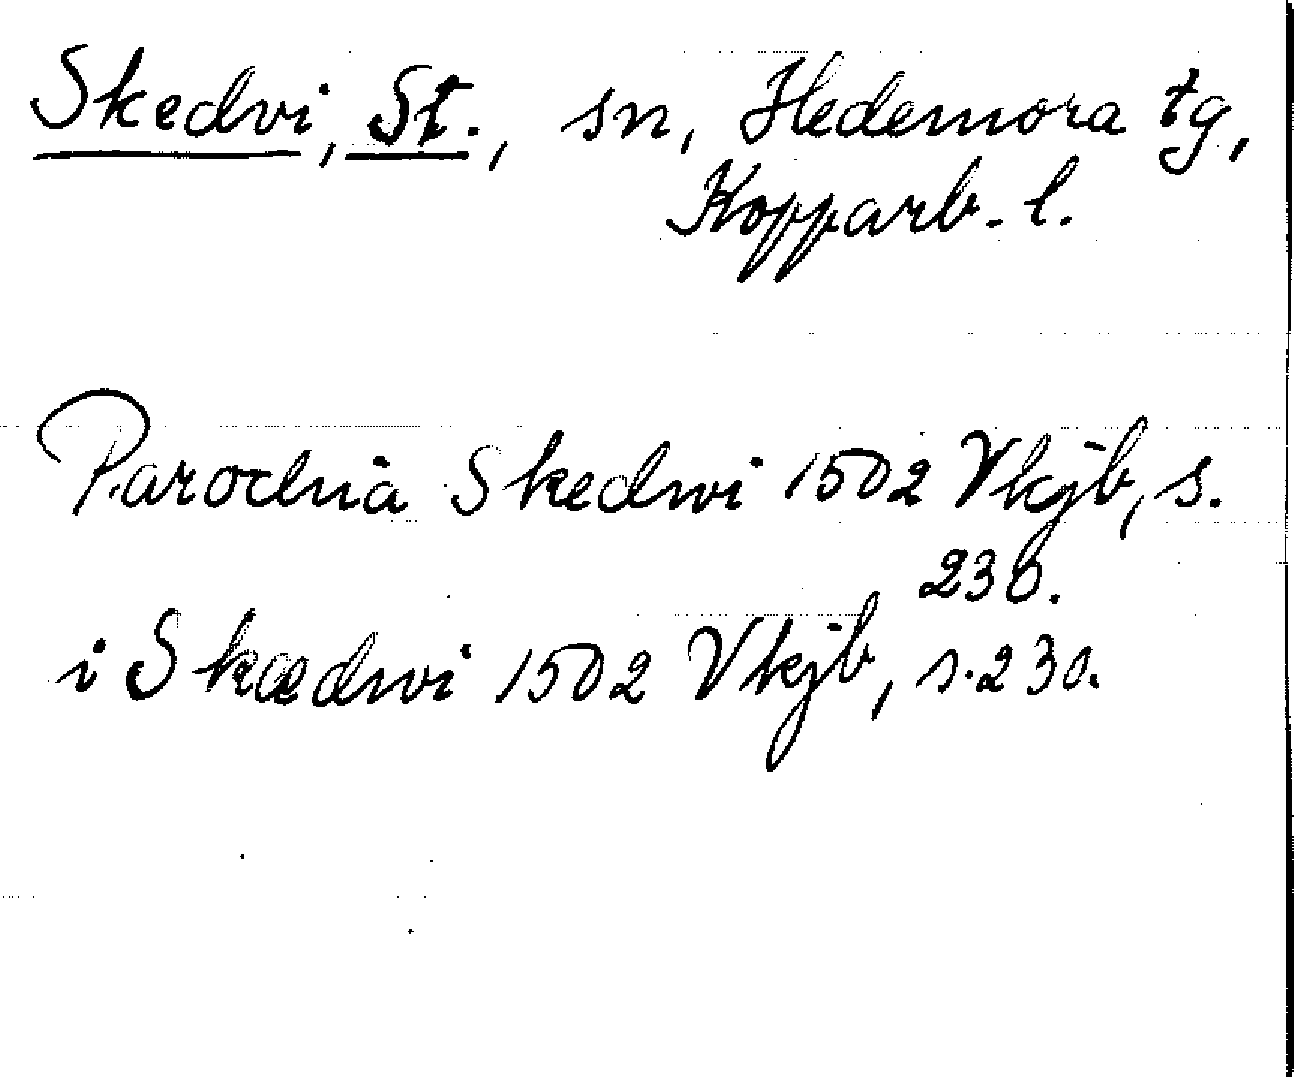 Skedvi, St., sn, Hedemora tg,
Kopparb. l.
Parochia Skedwi 1502 Vkjb, s.
230.
i Skædwi 1502 Vkjb, s. 230.